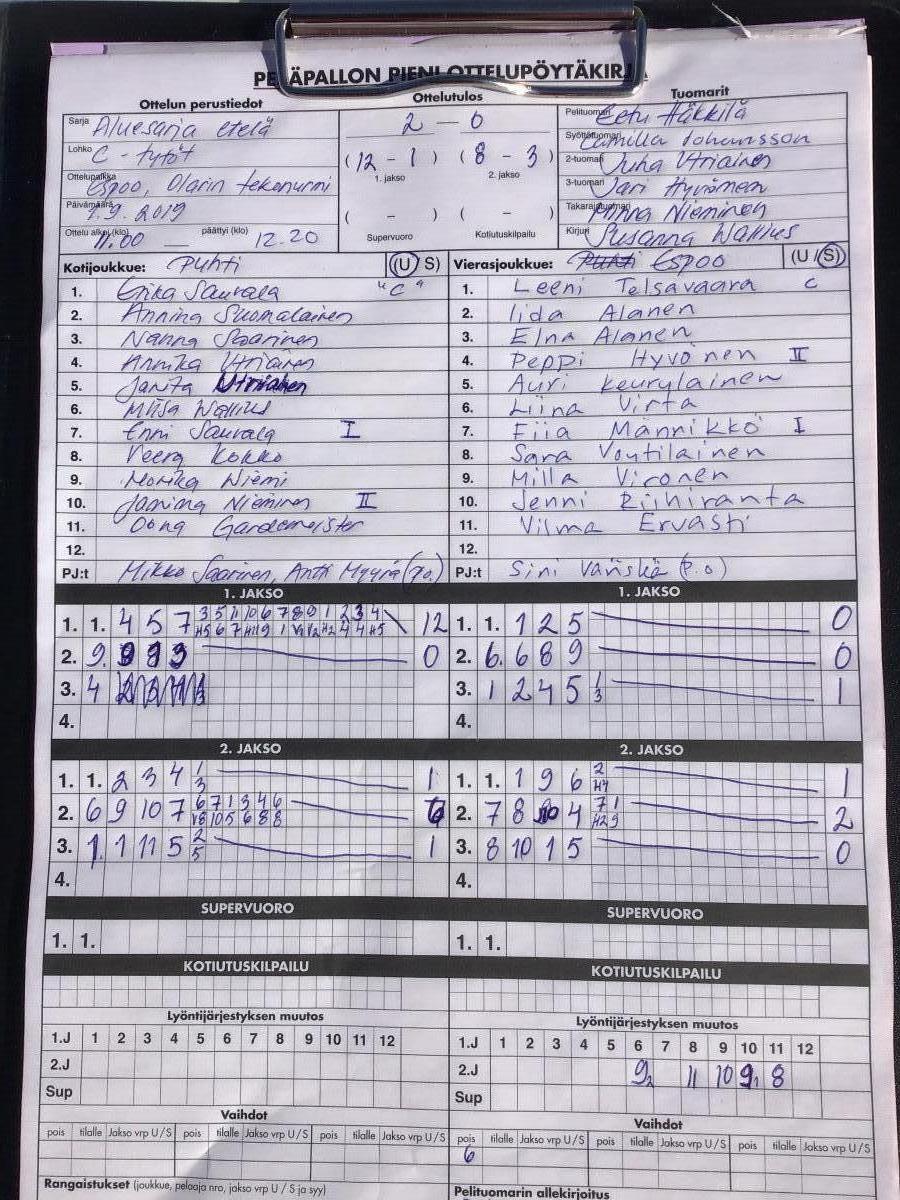 PESÄPALLON PIENI OTTELUPÖYTÄKIRJA
Ottelun perustiedot
Sarja Aluesarja etelä
Lohko C - tytöt
Ottelupaikka Espoo, Olarin tekonurmi
Päivämäärä 1.9.2019
Ottelu alkoi (klo) 11.00 päättyi (klo) 12.20
Ottelutulos
2 - 0
(12 - 1) (8 - 3)
1. jakso 2. jakso
( - ) ( - )
Supervuoro Kotiutuskilpailu
Tuomarit
Pelituomari Eetu Häkkilä
Syöttötuomari Camilla Johansson
2-tuomari Juha Utriainen
3-tuomari Jari Hyvönen
Takarajatuomari Minna Nieminen
Kirjuri Susanna Wallius
Kotijoukkue: Puhti (U/S)
1. Erika Sauvala "C"
2. Annina Suomalainen
3. Nanna Saarinen
4. Annika Utriainen
5. Janita Utriainen
6. Miisa Wallius
7. Enni Sauvala I
8. Veera Kokko
9. Monika Niemi
10. Janina Nieminen II
11. Oona Gardemeister
12.
PJ:t Mikko Saarinen, Antti Myyrä (p.o.)
Vierasjoukkue: Puhti Espoo (U/S)
1. Leeni Telsavaara C
2. Iida Alanen
3. Elna Alanen
4. Peppi Hyvönen II
5. Auri Keurulainen
6. Liina Virta
7. Fiia Männikkö I
8. Sara Voutilainen
9. Milla Vironen
10. Jenni Riihiranta
11. Vilma Ervasti
12.
PJ:t Sini Vänskä (p.o)
1. JAKSO
1. 1. 4 5 7 3 5 11 10 6 7 8 9 1 2 3 4 12
2. 9. 9 9 9 0
3. 4
4.
1. JAKSO
1. 1. 1 2 5 0
2. 6. 6 8 9 0
3. 1 2 4 5 1/3 1
4.
2. JAKSO
1. 1. 2 3 4 1/3 1
2. 6 9 10 7 6 7 1 3 4 6 6
V8 10 5 6 8 8
3. 1. 1 11 5 2/5 1
4.
2. JAKSO
1. 1. 1 9 6 2/H7 1
2. 7 8 10 4 7 1 2
H2 9
3. 8 10 1 5 0
4.
SUPERVUORO
1. 1.
SUPERVUORO
1. 1.
KOTIUTUSKILPAILU
KOTIUTUSKILPAILU
Lyöntijärjestyksen muutos
1.J 1 2 3 4 5 6 7 8 9 10 11 12
2.J
Sup
Lyöntijärjestyksen muutos
1.J 1 2 3 4 5 6 7 8 9 10 11 12
2.J 9₂ 11 10 9₁ 8
Sup
Vaihdot
pois tilalle Jakso vrp U/S pois tilalle Jakso vrp U/S pois tilalle Jakso vrp U/S
Vaihdot
pois tilalle Jakso vrp U/S pois tilalle Jakso vrp U/S pois tilalle Jakso vrp U/S
6
Rangaistukset (joukkue, pelaaja nro, jakso vrp U / S ja syy)
Pelituomarin allekirjoitus